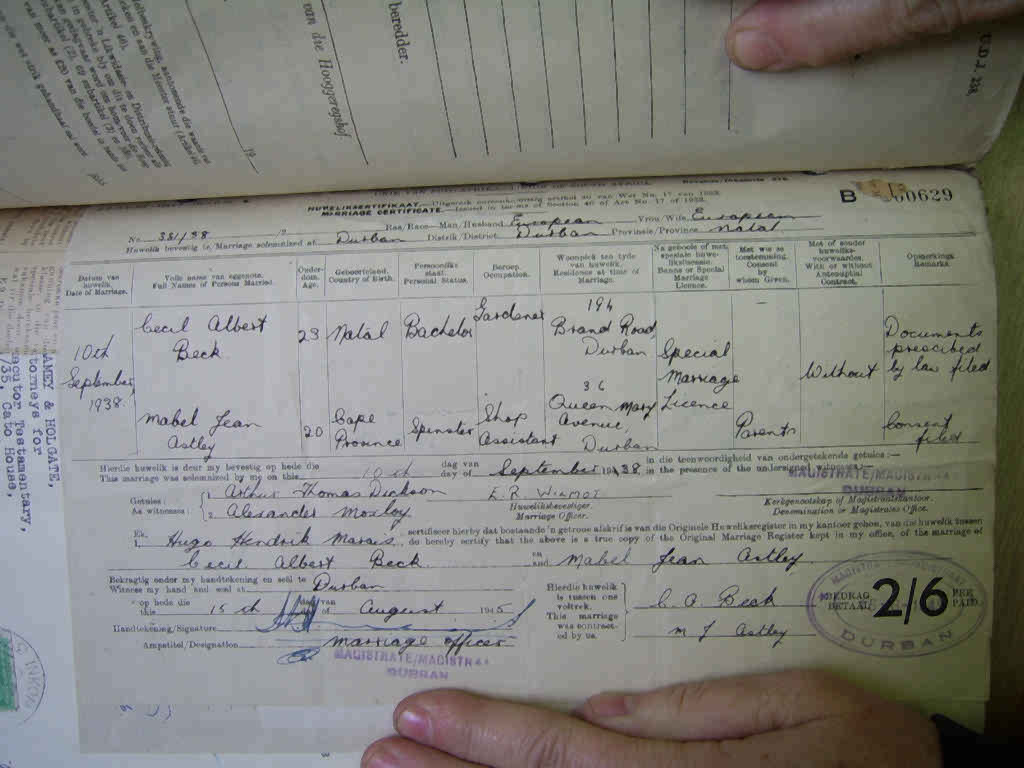 U.D.J. 238.
beredder.
van die Hooggeregshof
19
B 00629
HUWELIKSERTIFIKAAT.
MARRIAGE CERTIFICATE. Issued in terms of Section 40 of Act No. 17 of 1923.
No. 331/38 Ras/Race—Man/Husband European Vrou/Wife European
Huwelik bevestig te/Marriage solemnized at Durban Distrik/District Durban Provinsie/Province Natal
Datum van huwelik. Date of Marriage.
Volle name van eggenote. Full Names of Persons Married.
Ouderdom. Age.
Geboorteland. Country of Birth.
Persoonlike staat. Personal Status.
Beroep. Occupation.
Woonplek ten tyde van huwelik. Residence at time of Marriage.
Na geboole of met spesiale huweliksliseensie. Banns or Special Marriage Licence.
Met wie se toestemming. Consent by whom Given.
Met of sonder huweliksvoorwaardes. With or without Antenuptial Contract.
Opmerkings. Remarks.
10th September, 1938.
Cecil Albert Beck
23
Natal
Bachelor
Gardener
194 Brand Road, Durban
Special Marriage Licence
—
Without
Documents prescribed by law filed
Mabel Jean Astley
20
Cape Province
Spinster
Shop Assistant
36 Queen Mary Avenue, Durban
Parents
Consent filed
Hierdie huwelik is deur my bevestig op hede die dag van in die teenwoordigheid van ondergetekende getuies:—
This marriage was solemnized by me on this 10th day of September 1938 in the presence of the undersigned witnesses:—
MAGISTRATE/MAGISTRAAT
DURBAN
Getuies: 1. Arthur Thomas Dickson E. R. Wilmot
As witnesses: 2. Alexander Moxley
Huweliksbevestiger.
Marriage Officer.
Kerkgenootskap of Magistraatskantoor.
Denomination or Magistrates Office.
Ek, sertifiseer hierby dat bostaande 'n getroue afskrif is van die Originele Huweliksregister in my kantoor gehou, van die huwelik tussen
I, Hugo Hendrik Marais, do hereby certify that the above is a true copy of the Original Marriage Register kept in my office, of the marriage of
Cecil Albert Beck en and Mabel Jean Astley
Bekragtig onder my handtekening en seël te
Witness my hand and seal at Durban
op hede die dag van
15th of August 1945
Handtekening/Signature
Ampstitel/Designation marriage officer
MAGISTRATE/MAGISTRAAT
DURBAN
Hierdie huwelik is tussen ons voltrek.
This marriage was contracted by us.
C. A. Beck
M J Astley
BEDRAG BETAAL 2/6 FEE PAID
DURBAN
AMEY & HOLGATE,
torneys for
ecutor Testamentary,
/35, Cato House,